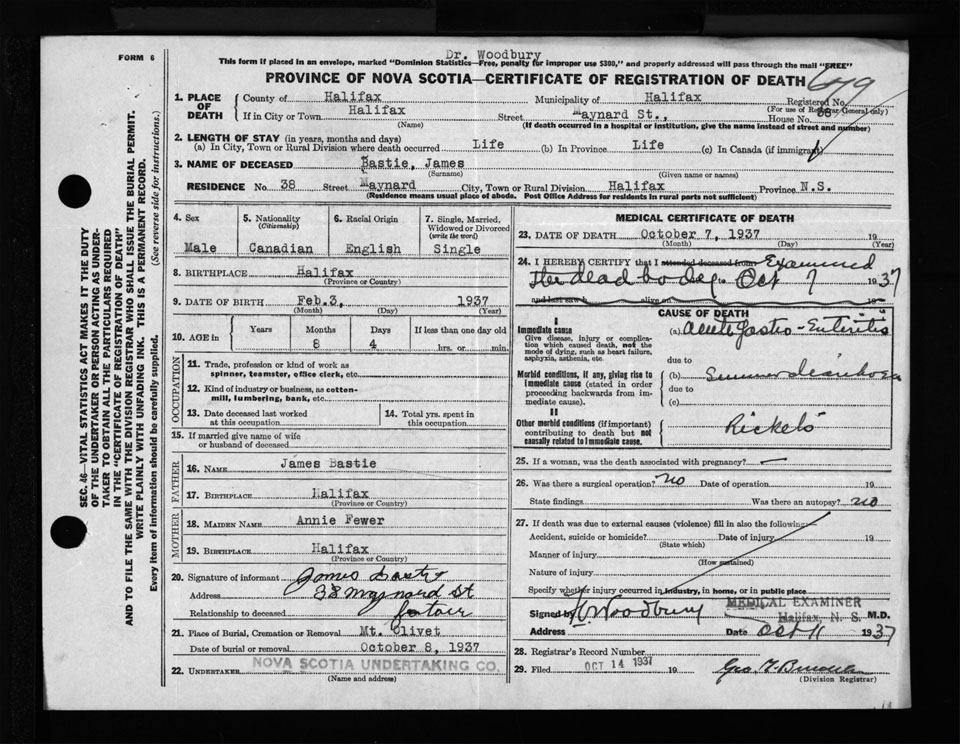 Dr. Woodbury
FORM 6
This form if placed in an envelope, marked "Dominion Statistics—Free, penalty for improper use $300," and properly addressed will pass through the mail "FREE"
PROVINCE OF NOVA SCOTIA—CERTIFICATE OF REGISTRATION OF DEATH
679
1. PLACE OF DEATH
County of Halifax Municipality of Halifax Registered No.
(For use of Registrar General only)
If in City or Town Halifax Street Maynard St., House No. 38
(Name) (If death occurred in a hospital or institution, give the name instead of street and number)
2. LENGTH OF STAY (in years, months and days)
(a) In City, Town or Rural Division where death occurred Life (b) In Province Life (c) In Canada (if immigrant)
3. NAME OF DECEASED Bastie, James
(Surname) (Given name or names)
RESIDENCE No. 38 Street Maynard City, Town or Rural Division Halifax Province N.S.
(Residence means usual place of abode. Post Office Address for residents in rural parts not sufficient)
4. Sex Male
5. Nationality (Citizenship) Canadian
6. Racial Origin English
7. Single, Married, Widowed or Divorced (write the word) Single
8. BIRTHPLACE Halifax
(Province or Country)
9. DATE OF BIRTH Feb.3, 1937
(Month) (Day) (Year)
10. AGE in Years Months 8 Days 4 If less than one day old hrs. or min.
OCCUPATION
11. Trade, profession or kind of work as spinner, teamster, office clerk, etc.
12. Kind of industry or business, as cotton-mill, lumbering, bank, etc.
13. Date deceased last worked at this occupation
14. Total yrs. spent in this occupation
15. If married give name of wife or husband of deceased
FATHER
16. NAME James Bastie
17. BIRTHPLACE Halifax
(Province or Country)
MOTHER
18. MAIDEN NAME Annie Fewer
19. BIRTHPLACE Halifax
(Province or Country)
20. Signature of informant James Bastie
Address 38 Maynard St
Relationship to deceased father
21. Place of Burial, Cremation or Removal Mt. Olivet
Date of burial or removal October 8, 1937
22. UNDERTAKER NOVA SCOTIA UNDERTAKING CO.
(Name and address)
MEDICAL CERTIFICATE OF DEATH
23. DATE OF DEATH October 7, 1937 19
(Month) (Day) (Year)
24. I HEREBY CERTIFY that I attended deceased from Examined
the dead body Oct 7 1937
and last saw h alive on 19
CAUSE OF DEATH
I
Immediate cause
Give disease, injury or complication which caused death, not the mode of dying, such as heart failure, asphyxia, asthenia, etc.
(a) Acute Gastro-Enteritis
due to
Morbid conditions, if any, giving rise to immediate cause (stated in order proceeding backwards from immediate cause).
(b) Summer diarrhoea
due to
(c)
II
Other morbid conditions (if important) contributing to death but not causally related to immediate cause.
Rickets
25. If a woman, was the death associated with pregnancy?
26. Was there a surgical operation? no Date of operation 19
State findings Was there an autopsy? no
27. If death was due to external causes (violence) fill in also the following:
Accident, suicide or homicide? Date of injury 19
(State which)
Manner of injury
(How sustained)
Nature of injury
Specify whether injury occurred in industry, in home, or in public place
Signed by Woodbury MEDICAL EXAMINER M.D.
Halifax, N. S.
Address Date Oct 11 1937
28. Registrar's Record Number
29. Filed OCT 14 1937 19
(Division Registrar)
SEC. 46—VITAL STATISTICS ACT MAKES IT THE DUTY
OF THE UNDERTAKER OR PERSON ACTING AS UNDER-
TAKER TO OBTAIN ALL THE PARTICULARS REQUIRED
IN THE "CERTIFICATE OF REGISTRATION OF DEATH"
AND TO FILE THE SAME WITH THE DIVISION REGISTRAR WHO SHALL ISSUE THE BURIAL PERMIT.
WRITE PLAINLY WITH UNFADING INK. THIS IS A PERMANENT RECORD.
Every item of information should be carefully supplied. (See reverse side for instructions.)